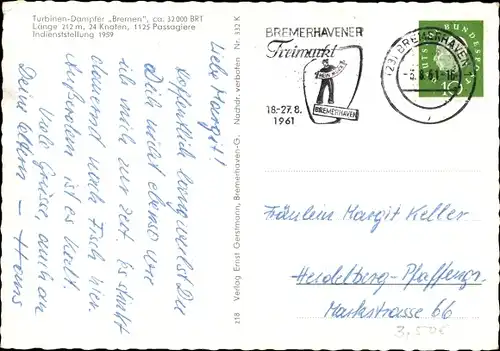 Turbinen-Dampfer „Bremen", ca. 32000 BRT
Länge 212 m, 24 Knoten, 1125 Passagiere
Indienststellung 1959
Liebe Margit!
Hoffentlich langweilst Du
Dich nicht ebenso wie
ich mich zur Zeit. Es stinkt
dauernd nach Fisch hier.
Außerdem ist es kalt.
Viele Grüsse, auch an
Deine Eltern – Hans
218 Verlag Ernst Gerstmann, Bremerhaven-G. Nachdr. verboten Nr. 332 K
BREMERHAVENER
Freimarkt
18.-27.8.
1961
BREMERHAVEN
(23) BREMERHAVEN
-3.8.61.-16
DEUTSCHE BUNDESPOST
10
Fräulein Margit Keller
Heidelberg-Pfaffengr.
Marktstrasse 66
3,50€